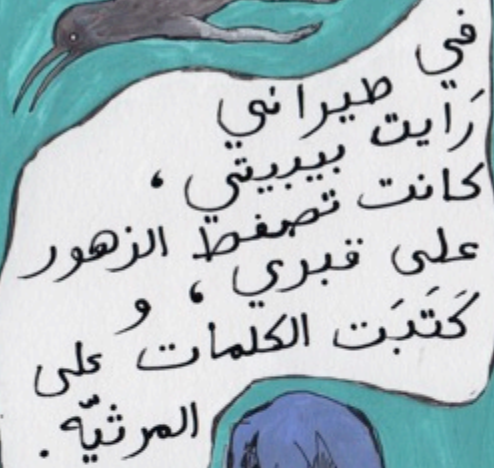 في
طيراني
رَايت بيبيتي ،
كانت تضغط الزهور
على قبري ، و
كَتَبَت الكلمات على
المرثيّه .